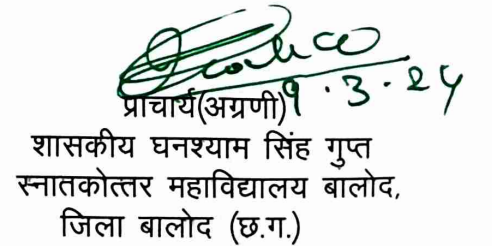 9.3.24
प्राचार्य(अग्रणी)
शासकीय घनश्याम सिंह गुप्त
स्नातकोत्तर महाविद्यालय बालोद,
जिला बालोद (छ.ग.)